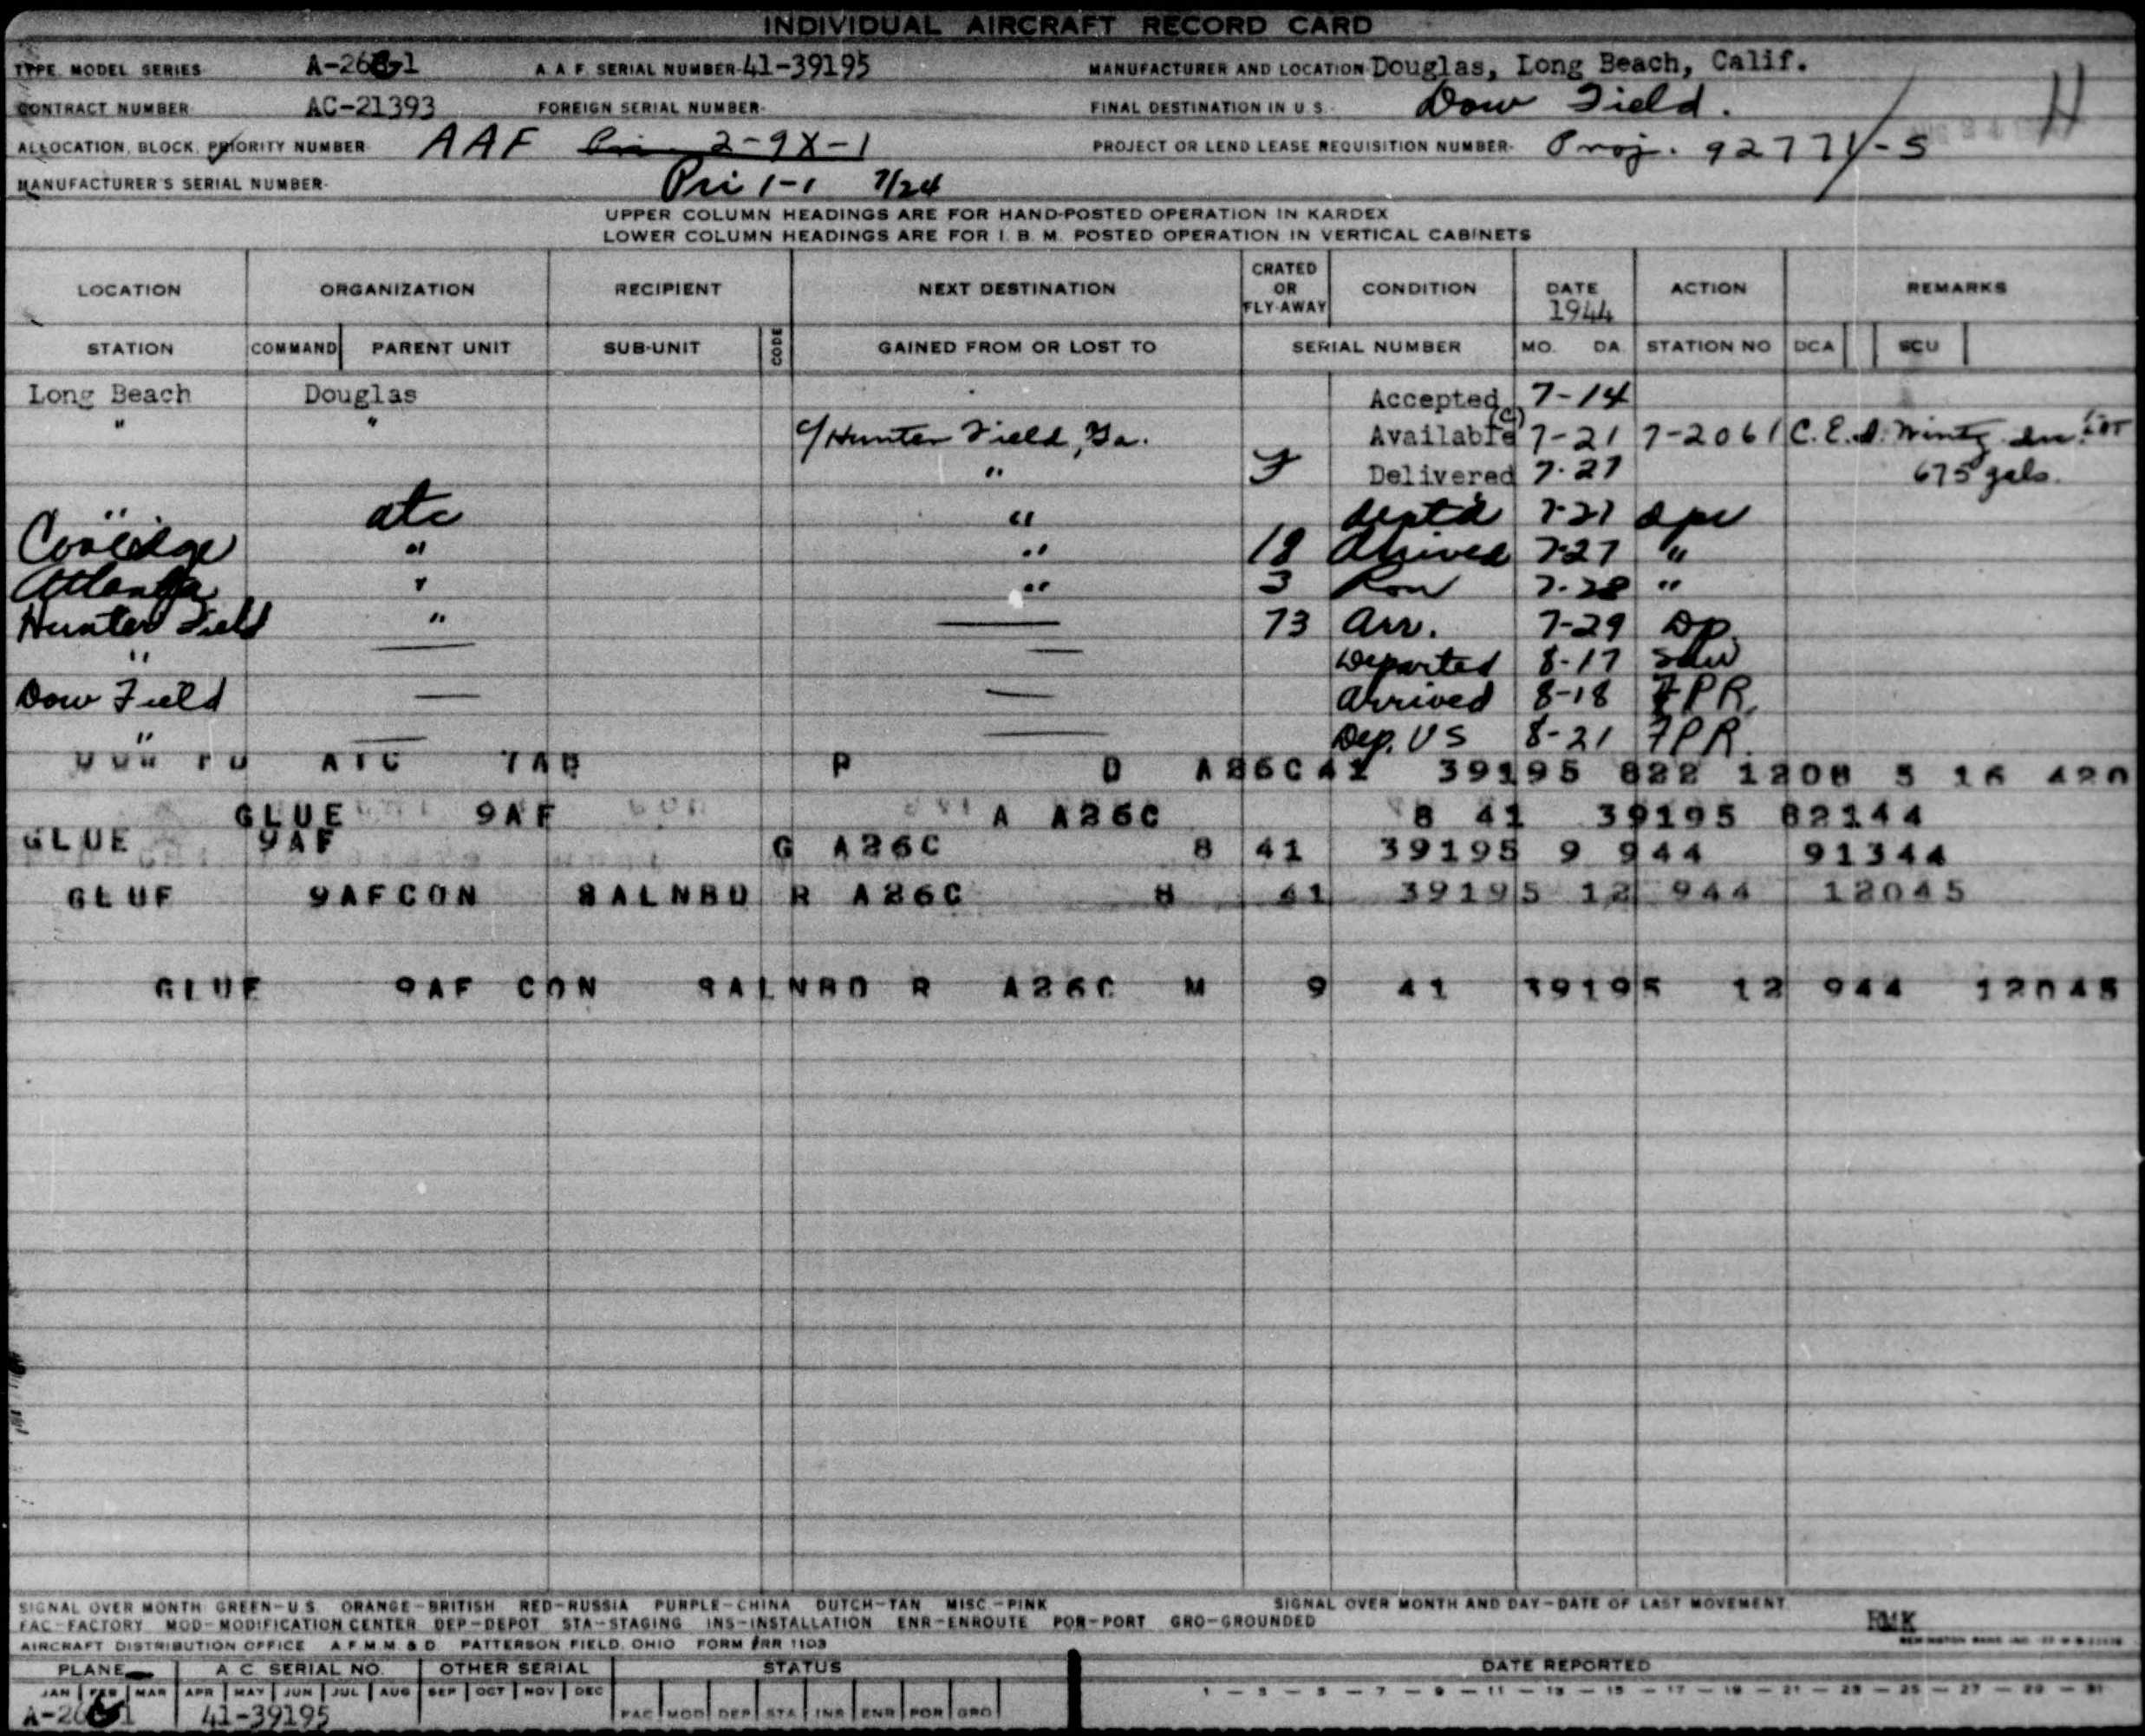 INDIVIDUAL AIRCRAFT RECORD CARD
TYPE MODEL SERIES A-26C-1 A.A.F. SERIAL NUMBER-41-39195 MANUFACTURER AND LOCATION Douglas, Long Beach, Calif.
CONTRACT NUMBER AC-21393 FOREIGN SERIAL NUMBER- FINAL DESTINATION IN U.S.- Dow Field.
ALLOCATION, BLOCK, PRIORITY NUMBER- AAF Pri 2-9X-1 PROJECT OR LEND LEASE REQUISITION NUMBER- Proj. 92771-S
MANUFACTURER'S SERIAL NUMBER- Pri 1-1 7/24
UPPER COLUMN HEADINGS ARE FOR HAND-POSTED OPERATION IN KARDEX
LOWER COLUMN HEADINGS ARE FOR I. B. M. POSTED OPERATION IN VERTICAL CABINETS
LOCATION ORGANIZATION RECIPIENT NEXT DESTINATION CRATED OR FLY-AWAY CONDITION DATE 1944 ACTION REMARKS
STATION COMMAND PARENT UNIT SUB-UNIT CODE GAINED FROM OR LOST TO SERIAL NUMBER MO. DA. STATION NO DCA SCU
Long Beach Douglas Accepted 7-14
" " c/Hunter Field, Ga. Available (C) 7-21 7-2061 C.E.D.
" F Delivered 7-27 675 gals.
" atc " 7-27
Coolidge " " 18 Arrived 7-27 "
Atlanta " " 3 Ron 7-28 "
Hunter Field " — 73 Arr. 7-29 Dp.
" — — Departed 8-17
Dow Field — — Arrived 8-18 FPR
" — — Dep. US 8-21 FPR.
DOW FD ATC 7AB P D A26C41 39195 822 1208 5 16 420
GLUE 9AF A A26C 8 41 39195 82144
GLUE 9AF G A26C 8 41 39195 9 944 91344
GLUE 9AFCON 8ALNBD R A26C 8 41 39195 12 944 12045
GLUE 9AF CON 9ALNBD R A26C M 9 41 39195 12 944 12045
SIGNAL OVER MONTH GREEN-U.S. ORANGE-BRITISH RED-RUSSIA PURPLE-CHINA DUTCH-TAN MISC.-PINK SIGNAL OVER MONTH AND DAY-DATE OF LAST MOVEMENT
FAC-FACTORY MOD-MODIFICATION CENTER DEP-DEPOT STA-STAGING INS-INSTALLATION ENR-ENROUTE POR-PORT GRO-GROUNDED RMK
AIRCRAFT DISTRIBUTION OFFICE A.F.M.M.&D. PATTERSON FIELD, OHIO FORM #RR 1103
PLANE A C SERIAL NO. OTHER SERIAL STATUS DATE REPORTED
JAN FEB MAR APR MAY JUN JUL AUG SEP OCT NOV DEC FAC MOD DEP STA INS ENR POR GRO 1 - 3 - 5 - 7 - 9 - 11 - 13 - 15 - 17 - 19 - 21 - 23 - 25 - 27 - 29 - 31
A-26C-1 41-39195